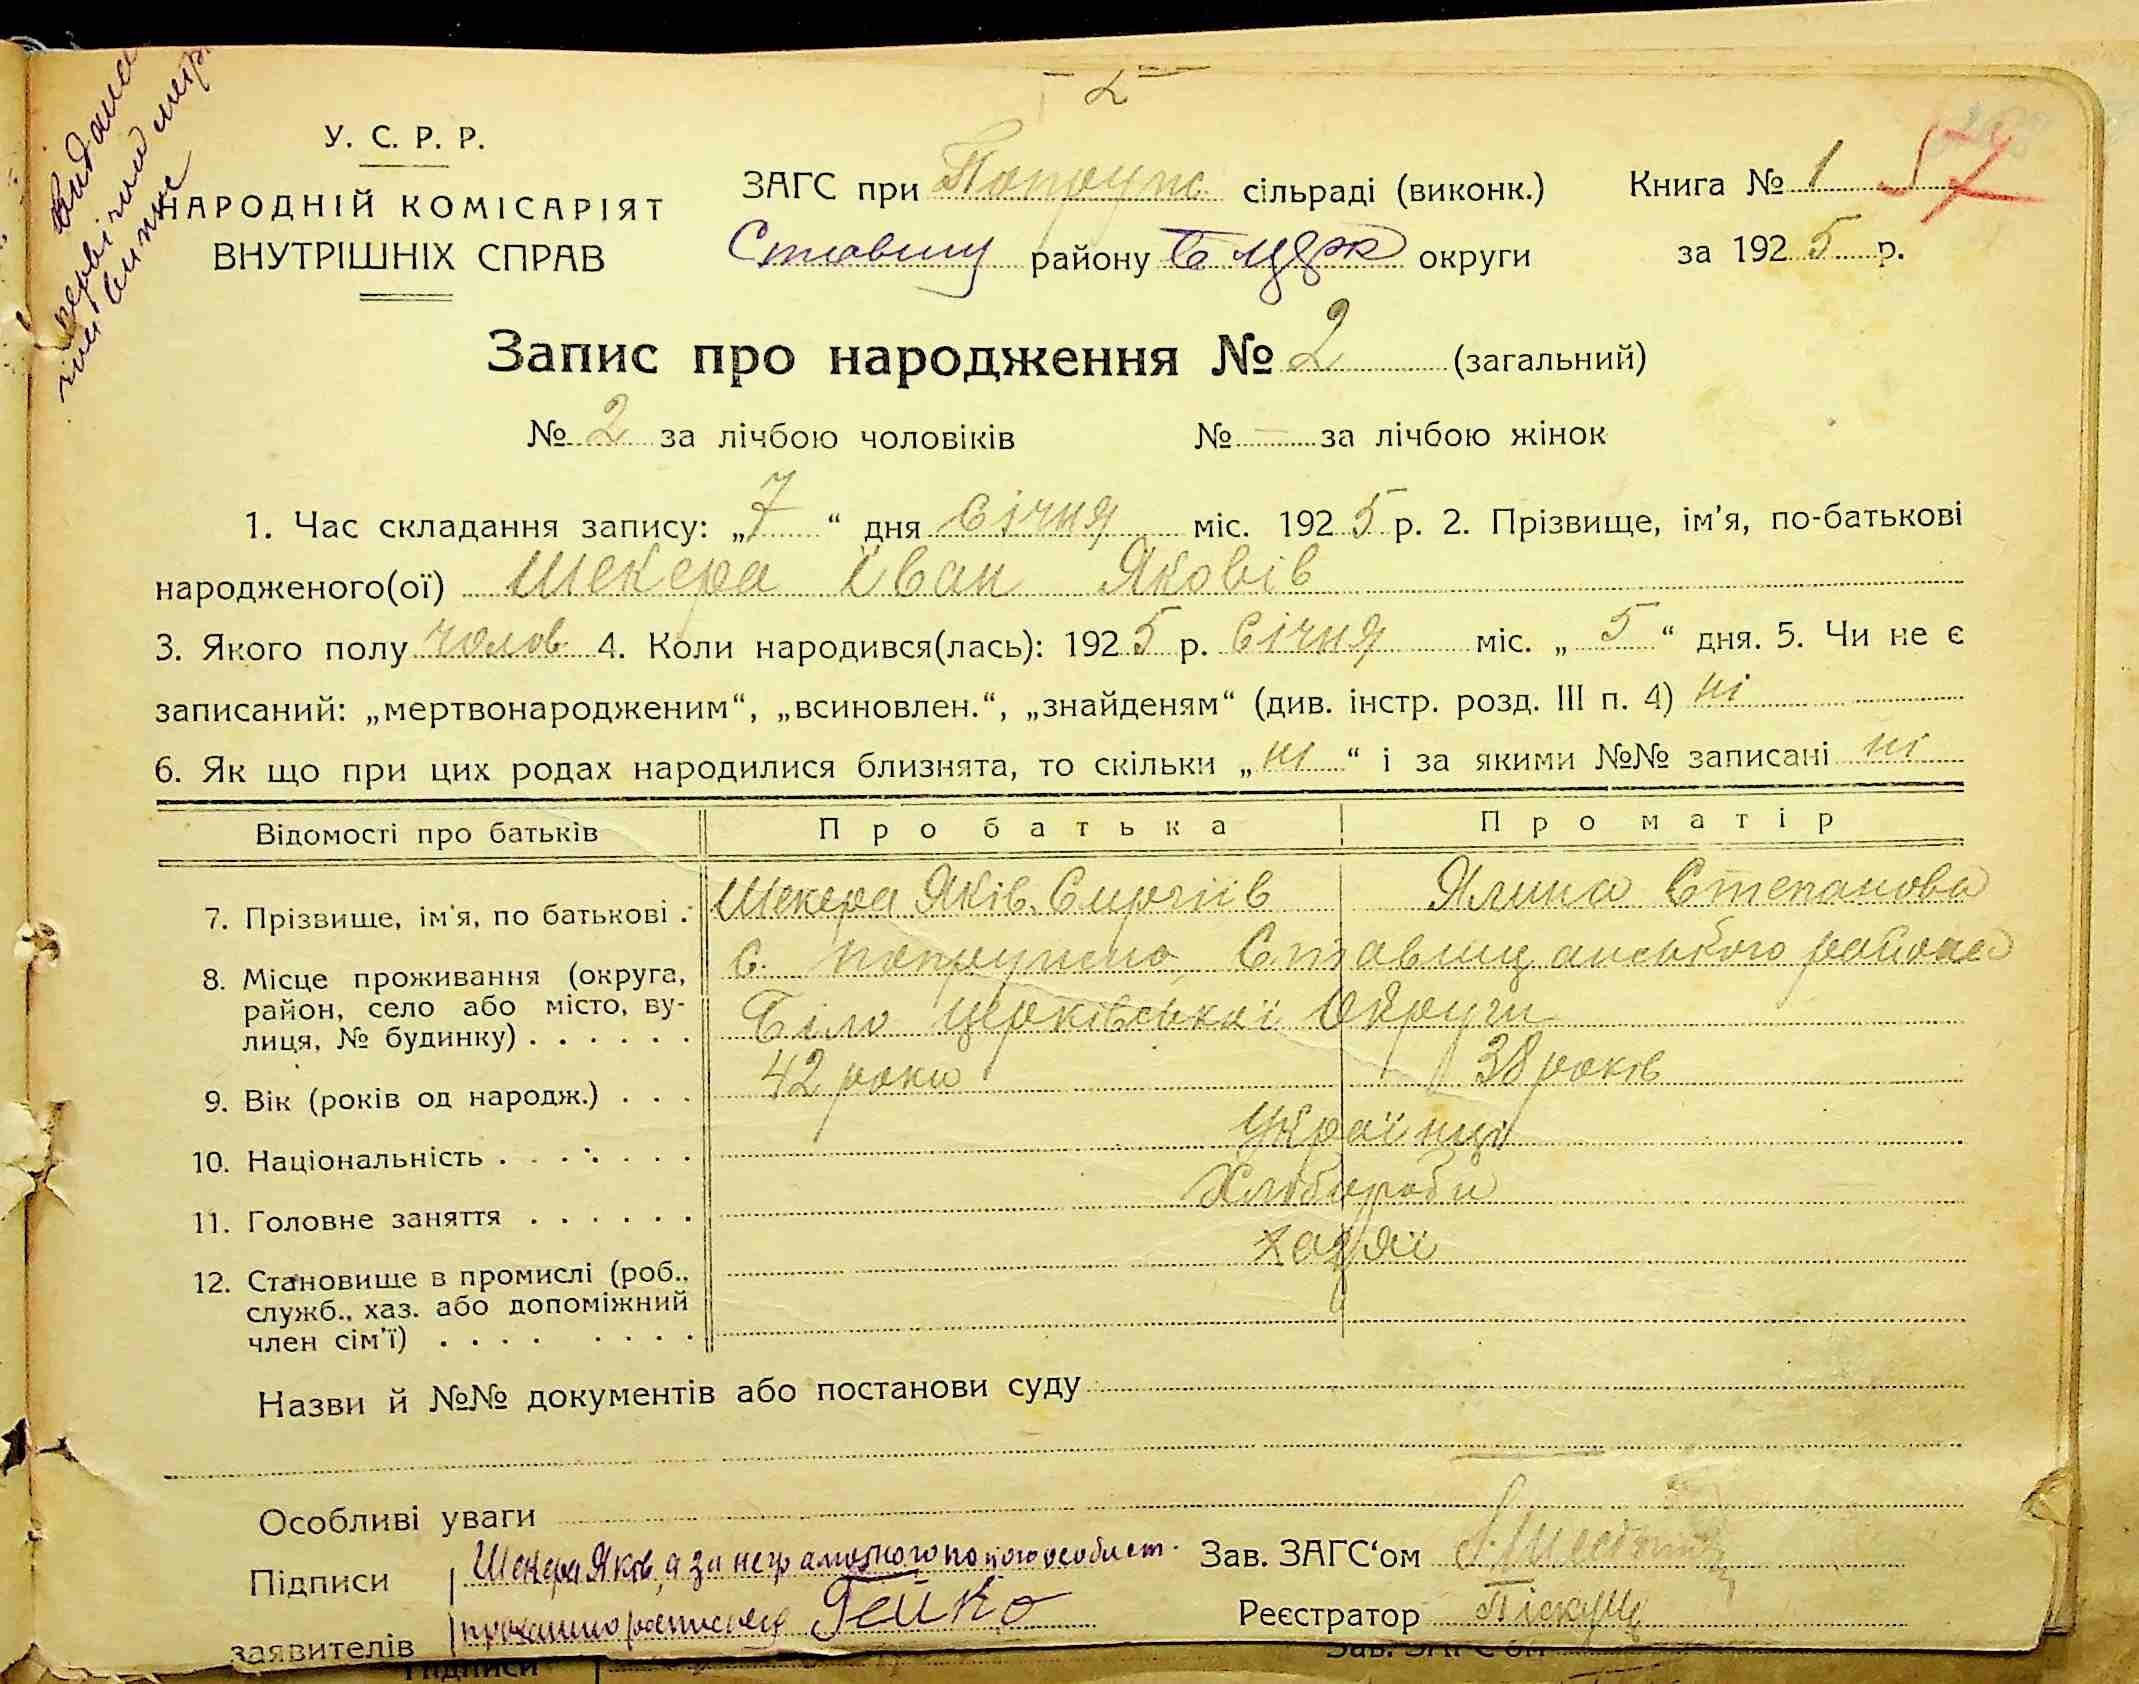 – 2 –
Видано
У. С. Р. Р.
НАРОДНІЙ КОМІСАРІЯТ
ВНУТРІШНІХ СПРАВ
ЗАГС при Попруж сільраді (виконк.)
Ставищ району Б церк округи
Книга № 1 57
за 1925 р.
Запис про народження № 2 (загальний)
№ 2 за лічбою чоловіків № – за лічбою жінок
1. Час складання запису: „7“ дня Січня міс. 1925 р. 2. Прізвище, ім'я, по-батькові
народженого(ої) Шекера Іван Яковів
3. Якого полу чолов 4. Коли народився(лась): 1925 р. Січня міс. „5“ дня. 5. Чи не є
записаний: „мертвонародженим“, „всиновлен.“, „знайденям“ (див. інстр. розд. III п. 4) ні
6. Як що при цих родах народилися близнята, то скільки „ні“ і за якими №№ записані ні
Відомості про батьків Про батька Про матір
7. Прізвище, ім'я, по батькові . Шекера Яків Сиргіїв Ялина Степанова
8. Місце проживання (округа, с. Попружно Ставищанського района
район, село або місто, ву-
лиця, № будинку) . . . . . . Біло церківської Округи
9. Вік (років од народж.) . . . 42 роки 38 років
10. Національність . . . . . . . Українці
11. Головне заняття . . . . . . Хлібороби
12. Становище в промислі (роб., хазяї
служб., хаз. або допоміжний
член сім'ї) . . . . . . . .
Назви й №№ документів або постанови суду
Особливі уваги
Підписи Шекера Яков, а за неграмотного по його особист.
заявителів проханню росписався Гейко
Зав. ЗАГС'ом
Реєстратор
Підписи
Зав. ЗАГС'ом